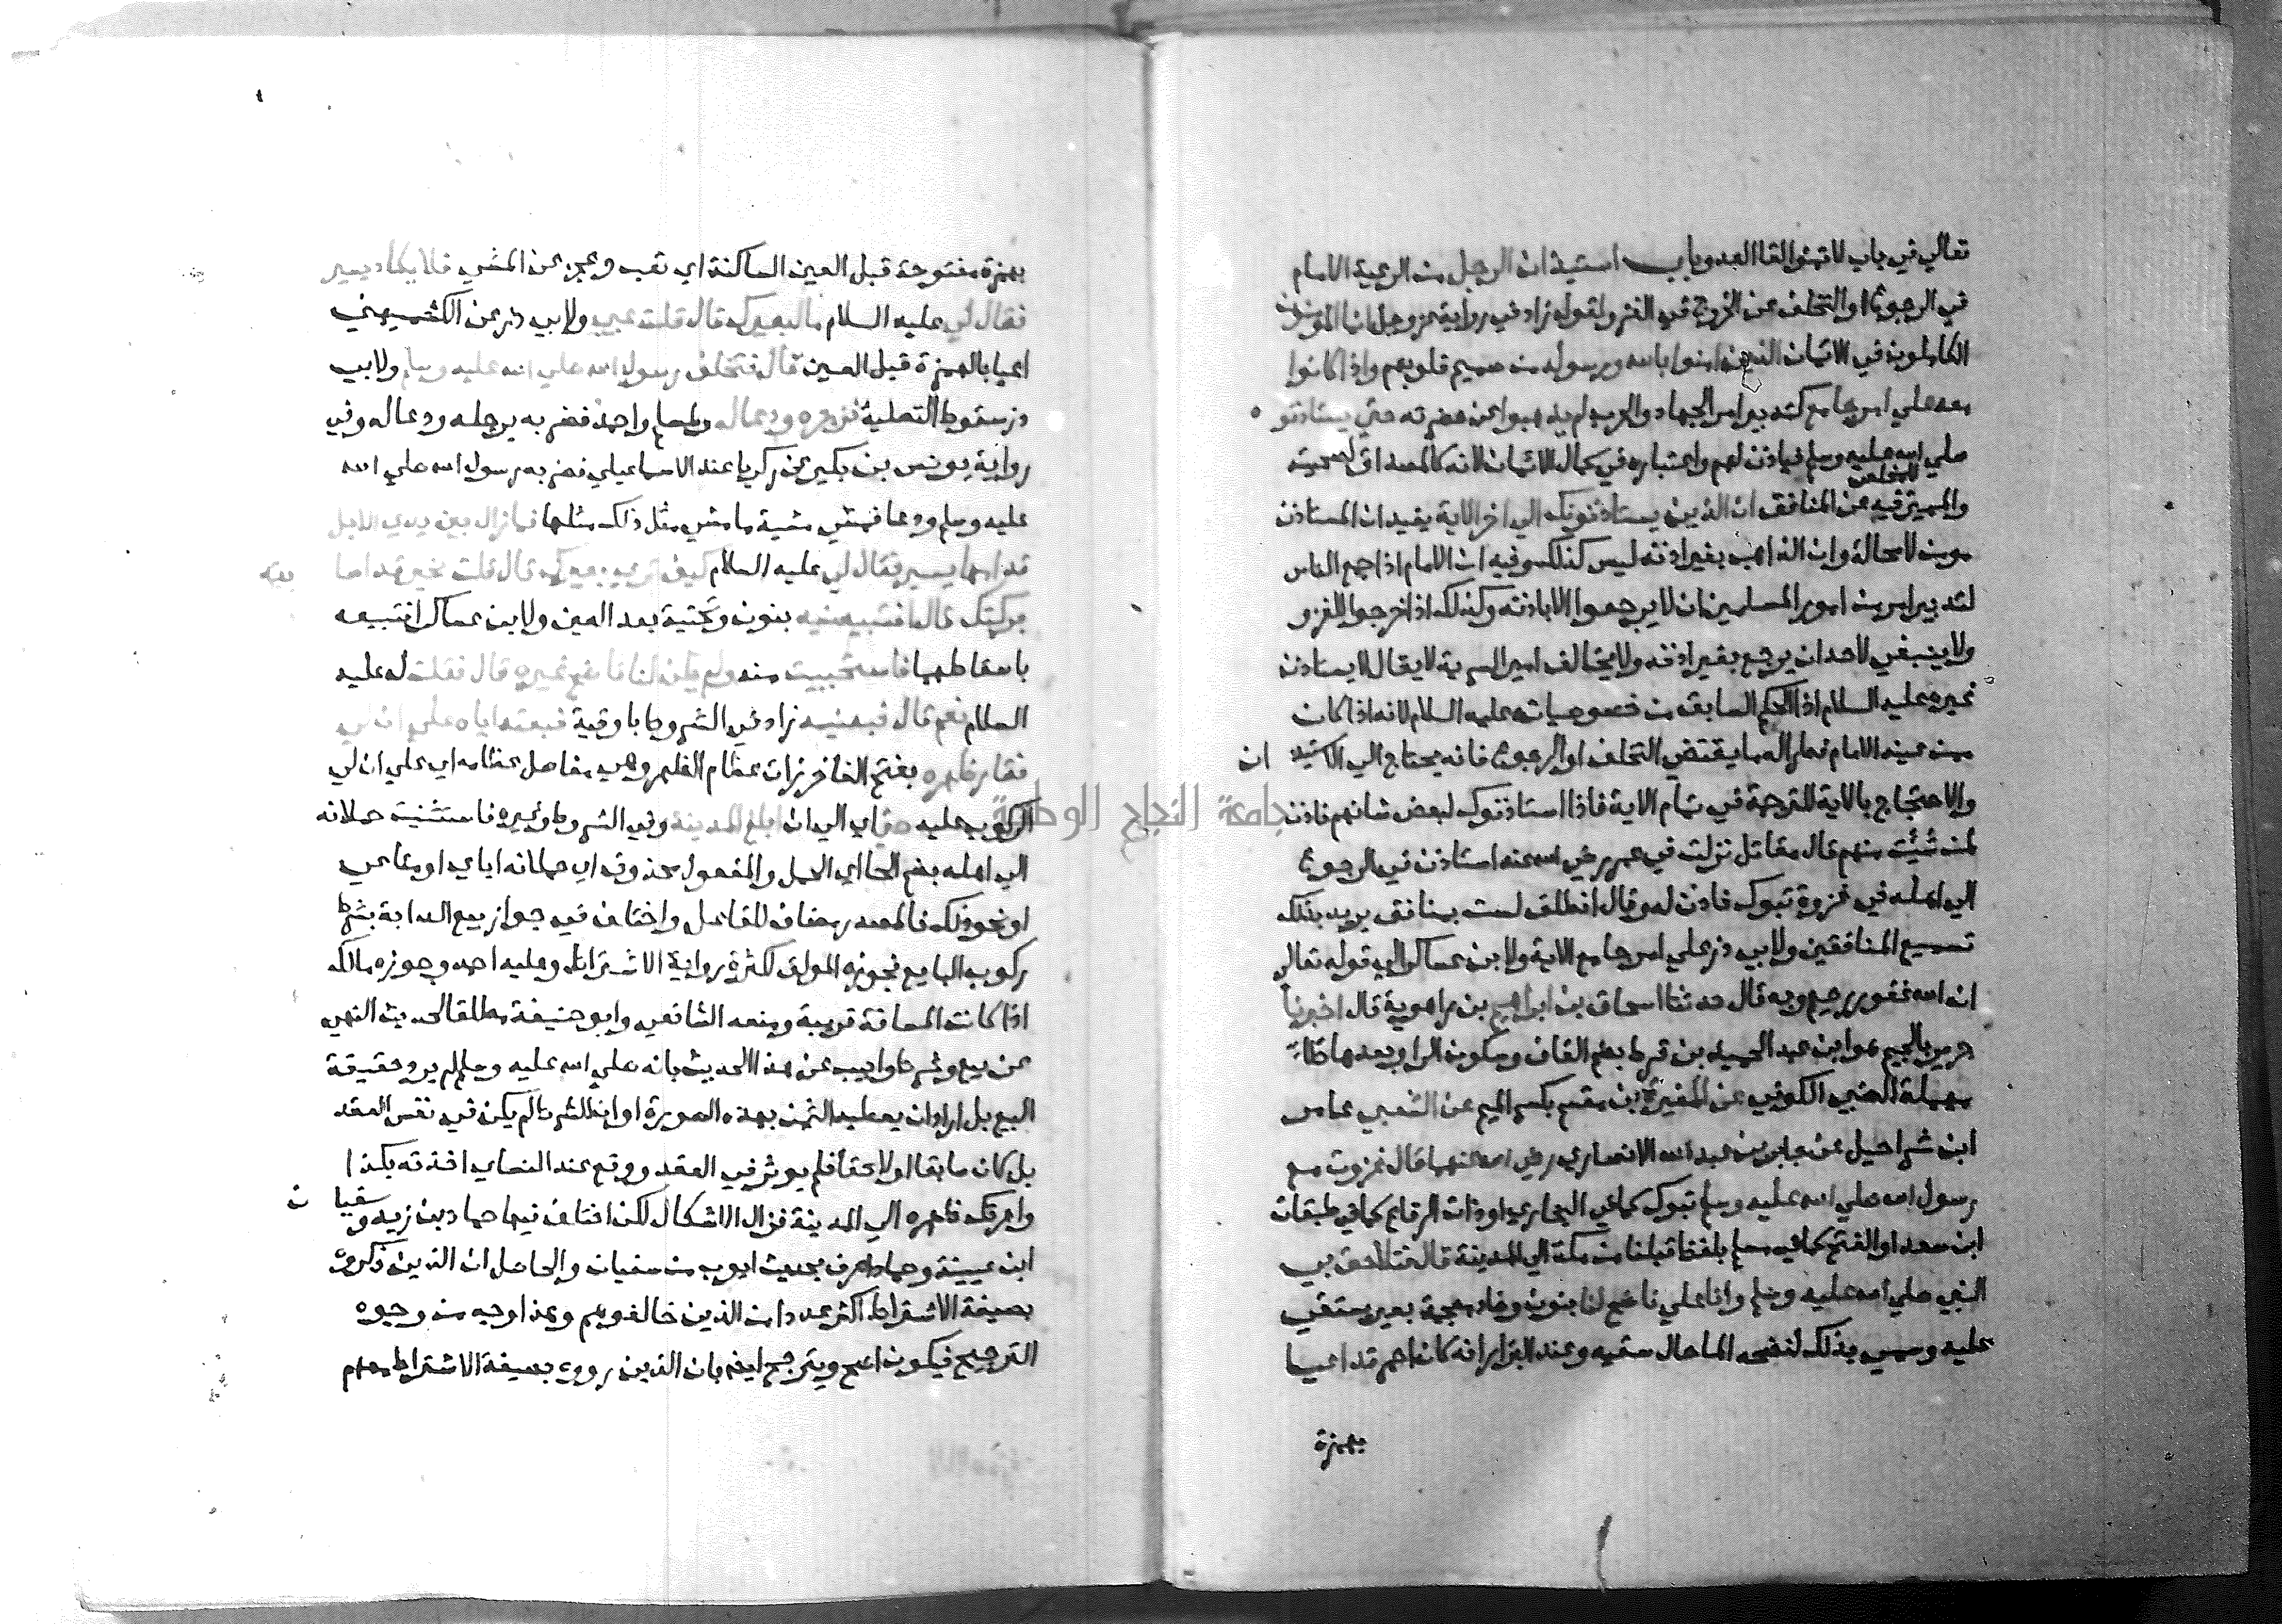 تعالي في باب لا تمنوا لقا العدو باب استيذان الرجل من الرعية الامام
في الرجوع او التخلف عن الخروج في الغزو لقوله زاد في رواية عز وجل انما المومنون
الكاملون في الايمان الذين امنوا بالله ورسوله من صميم قلوبهم واذا كانوا
معه علي امر جامع كتدبير امر الجهاد والحرب لم يذهبوا عن حضرته حتي يستاذنوه
صلي الله عليه وسلم فياذن لهم واعتباره في كمال الايمان لانه كالمصداق لصحته
والمميز فيه للمخلص عن المنافق ان الذين يستاذنونك الي اخر الاية يفيد ان المستاذن
مومن لا محالة وان الذاهب بغير اذنه ليس كذلك وفيه ان الامام اذا جمع الناس
لتدبير امر من امور المسلمين ان لا يرجعوا الا باذنه وكذلك اذا خرجوا للغزو
ولا ينبغي لاحد ان يرجع بغير اذنه ولا يخالف امير السرية لا يقال لا يستاذن
غيره عليه السلام اذ الحكم السابق من خصوصياته عليه السلام لانه اذا كان
من عينه الامام فطرا له ما يقتضي التخلف او الرجوع فانه يحتاج الي الاستيذ ان
والاحتجاج بالاية للترجمة في تمام الاية فاذا استاذنوك لبعض شانهم فاذن
لمن شئت منهم قال مقاتل نزلت في عمر رضي الله عنه استاذن في الرجوع
الي اهله في غزوة تبوك فاذن له وقال انطلق لست بمنافق يريد بذلك
تسميع المنافقين ولابي ذر علي امر جامع الاية ولابن عساكر الي قوله تعالي
ان الله غفور رحيم وبه قال حدثنا اسحاق بن ابراهيم بن راهوية قال اخبرنا
جرير بالجيم هو ابن عبد الحميد بن قرط بضم القاف وسكون الرا وبعدها طاء
مهملة الضبي الكوفي عن المغيرة بن مقسم بكسر الميم عن الشعبي عامر
ابن شراحيل عن جابر بن عبد الله الانصاري رضي الله عنهما قال غزوت مع
رسول الله صلي الله عليه وسلم تبوك كما في البخاري او ذات الرقاع كما في طبقات
ابن سعد او الفتح كما في مسلم بلفظ اقبلنا من مكة الي المدينة قال فتلاحق بي
النبي صلي الله عليه وسلم وانا علي ناضح لنا بنون وضاد معجمة بعير يستقي
عليه وسمي بذلك لنضحه الما حال سقيه وعند البزار انه كان احمر قد اعيا
بهمزة
بهمزة مفتوحة قبل العين الساكنة اي تعب وعجز عن المشي فلا يكاد يسير
فقال لي عليه السلام ما لبعيرك قال قلت عيي ولابي ذر عن الكشميهني
اعيا بالهمزة قبل العين قال فتخلف رسول الله صلي الله عليه وسلم ولابي
ذر سقوط التصلية فزجره ودعا له ولمسلم واحمد فضربه برجله ودعا له وفي
رواية يونس بن بكير عن زكريا عند الاسماعيلي فضربه رسول الله صلي الله
عليه وسلم ودعا فمشي مشية ما مشي مثل ذلك مثلها فما زال بين يدي الابل
قدامها يسير فقال لي عليه السلام كيف تري بعيرك قال قلت بخير قد اصا بته
بركتك قال افتبيعنيه بنون وتحتية بعد العين ولابن عساكر افتبيعه
باسقاطهما فاستحييت منه ولم يكن لنا ناضح غيره قال فقلت له عليه
السلام نعم قال فبعنيه زاد في الشروط باوقية فبعته اياه علي ان لي
فقار ظهره بفتح الفا خرزات عظام الظهر وهي مفاصل عظامه اي علي ان لي
الركوب عليه حتي اي الي ان ابلغ المدينة وفي الشروط وغيره فاستثنيت حملانه
الي اهله بضم الحا اي الحمل والمفعول محذوف اي حملانه اياي او متاعي
او نحو ذلك فالمصدر مضاف للفاعل واختلف في جواز بيع الدابة بشرط
ركوب البايع فجوزه المولف لكثرة رواية الاشتراط وعليه احمد وجوزه مالك
اذا كانت المسافة قريبة ومنعه الشافعي وابو حنيفة مطلقا لحديث النهي
عن بيع وشرط واجيب عن هذا الحديث بانه صلي الله عليه وسلم لم يرد حقيقة
البيع بل اراد ان يعطيه الثمن بهذه الصورة او ان الشرط لم يكن في نفس العقد
بل كان سابقا او لاحقا فلم يوثر في العقد ووقع عند النساي اخذته بكذا
واعرتك ظهره الي المدينة فزال الاشكال لكن اختلف فيها حماد بن زيد وسفيا ن
ابن عيينة وحماد اعرف بحديث ايوب من سفيان والحاصل ان الذين ذكروه
بصيغة الاشتراط اكثر عددا من الذين خالفوهم وهذا وجه من وجوه
الترجيح فيكون اصح ويترجح ايضا بان الذين رووه بصيغة الاشتراط معهم
جامعة النجاح الوطنية